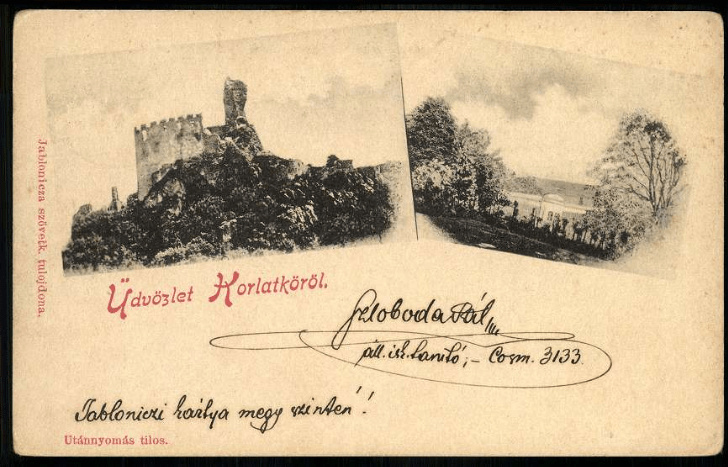 Jablonicza szövetk. tulajdona.
Üdvözlet Horlatkőről.
Szloboda Pál
áll. isk. tanító, – Cosm. 3133.
Jabloniczi kártya megy szintén!
Utánnyomás tilos.